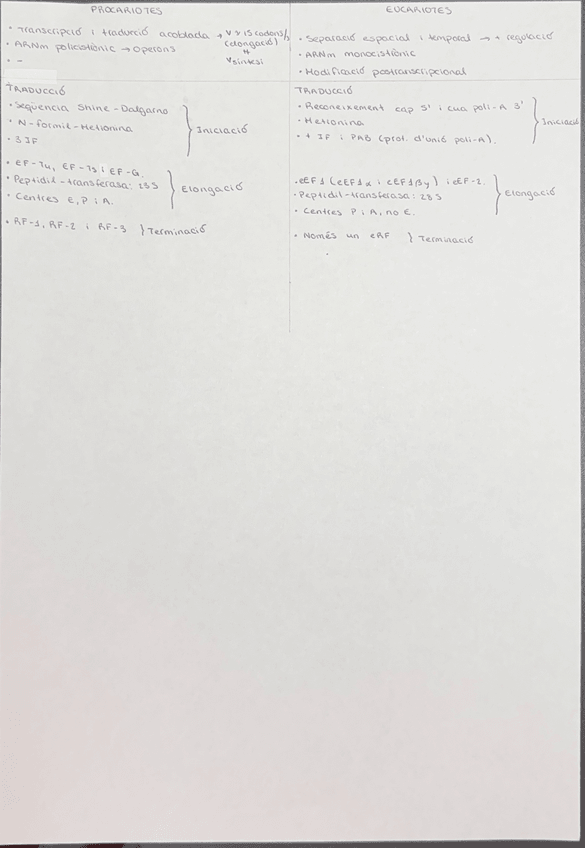 PROCARIOTES
• Transcripció i traducció acoblada → V ≈ 15 codons/s
(elongació)
• ARNm policistrònic → Operons
V síntesi
• -
TRADUCCIÓ
• Seqüència Shine-Dalgarno
• N-formil-Metionina } Iniciació
• 3 IF
• EF-Tu, EF-Ts i EF-G.
• Peptidil-transferasa: 23S } Elongació
• Centres E, P i A.
• RF-1, RF-2 i RF-3 } Terminació
EUCARIOTES
• Separació espacial i temporal → + regulació
• ARNm monocistrònic
• Modificació postranscripcional
TRADUCCIÓ
• Reconeixement cap 5' i cua poli-A 3'
• Metionina } Iniciació
• + IF i PAB (prot. d'unió poli-A).
• eEF1 (eEF1α i eEF1βγ) i eEF-2.
• Peptidil-transferasa: 28S } Elongació
• Centres P i A, no E.
• Només un eRF } Terminació